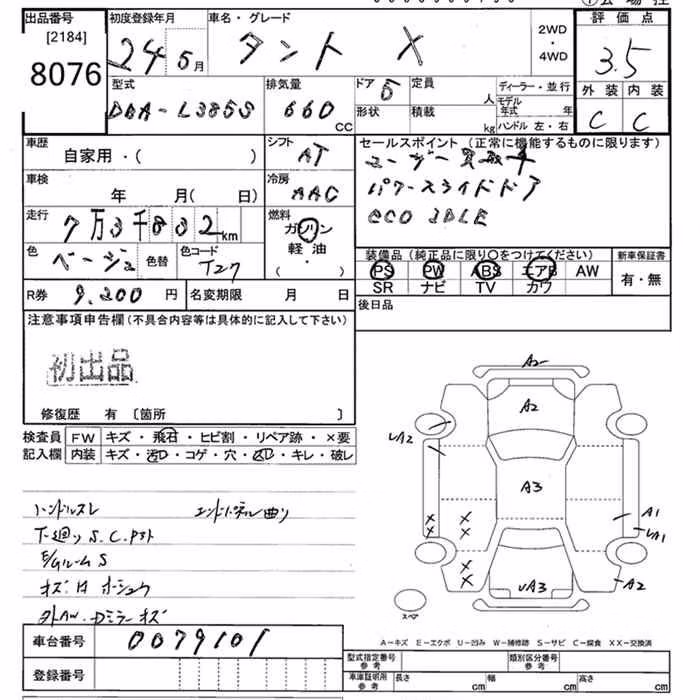 出品番号
[2184]
8076
初度登録年月
24 5月
車名・グレード
タント X
2WD
・
4WD
評価点
3.5
外装 内装
C C
型式
DBA-L385S
排気量
660
CC
ドア 5
定員
人
形状
積載
kg
ディーラー・並行
モデル
年式 年
ハンドル 左・右
車歴
自家用・( )
シフト
AT
セールスポイント (正常に機能するものに限ります)
ユーザー買取車
パワースライドドア
eco IDLE
車検
年 月( 日)
冷房
AAC
走行
7万3千832km
燃料
ガソリン
軽・油
・
( )
色
ベージュ
色替
色コード
T27
装備品(純正品に限り○をつけてください)
PS PW ABS エアB AW
SR ナビ TV カワ
新車保証書
有・無
R券 9,200 円
名変期限 月 日
後日品
注意事項申告欄(不具合内容等は具体的に記入して下さい)
初出品
修復歴 有 〔箇所 〕
検査員
記入欄
FW キズ・飛石・ヒビ割・リペア跡・×要
内装 キズ・汚れ・コゲ・穴・スレ・キレ・破レ
ハンドルスレ エンドパネル曲り
下廻りS.C.
E/GルームS
外AW.Dミラーキズ
A2
A2
UA2
A3
A1
UA1
UA3
A2
スペア
A-キズ E-エクボ U-凹み W-補修跡 S-サビ C-腐食 XX-交換済
車台番号 0079101
登録番号
型式指定番号
参考
類別区分番号
参考
車庫証明用
参考
長さ cm 幅 cm 高さ cm